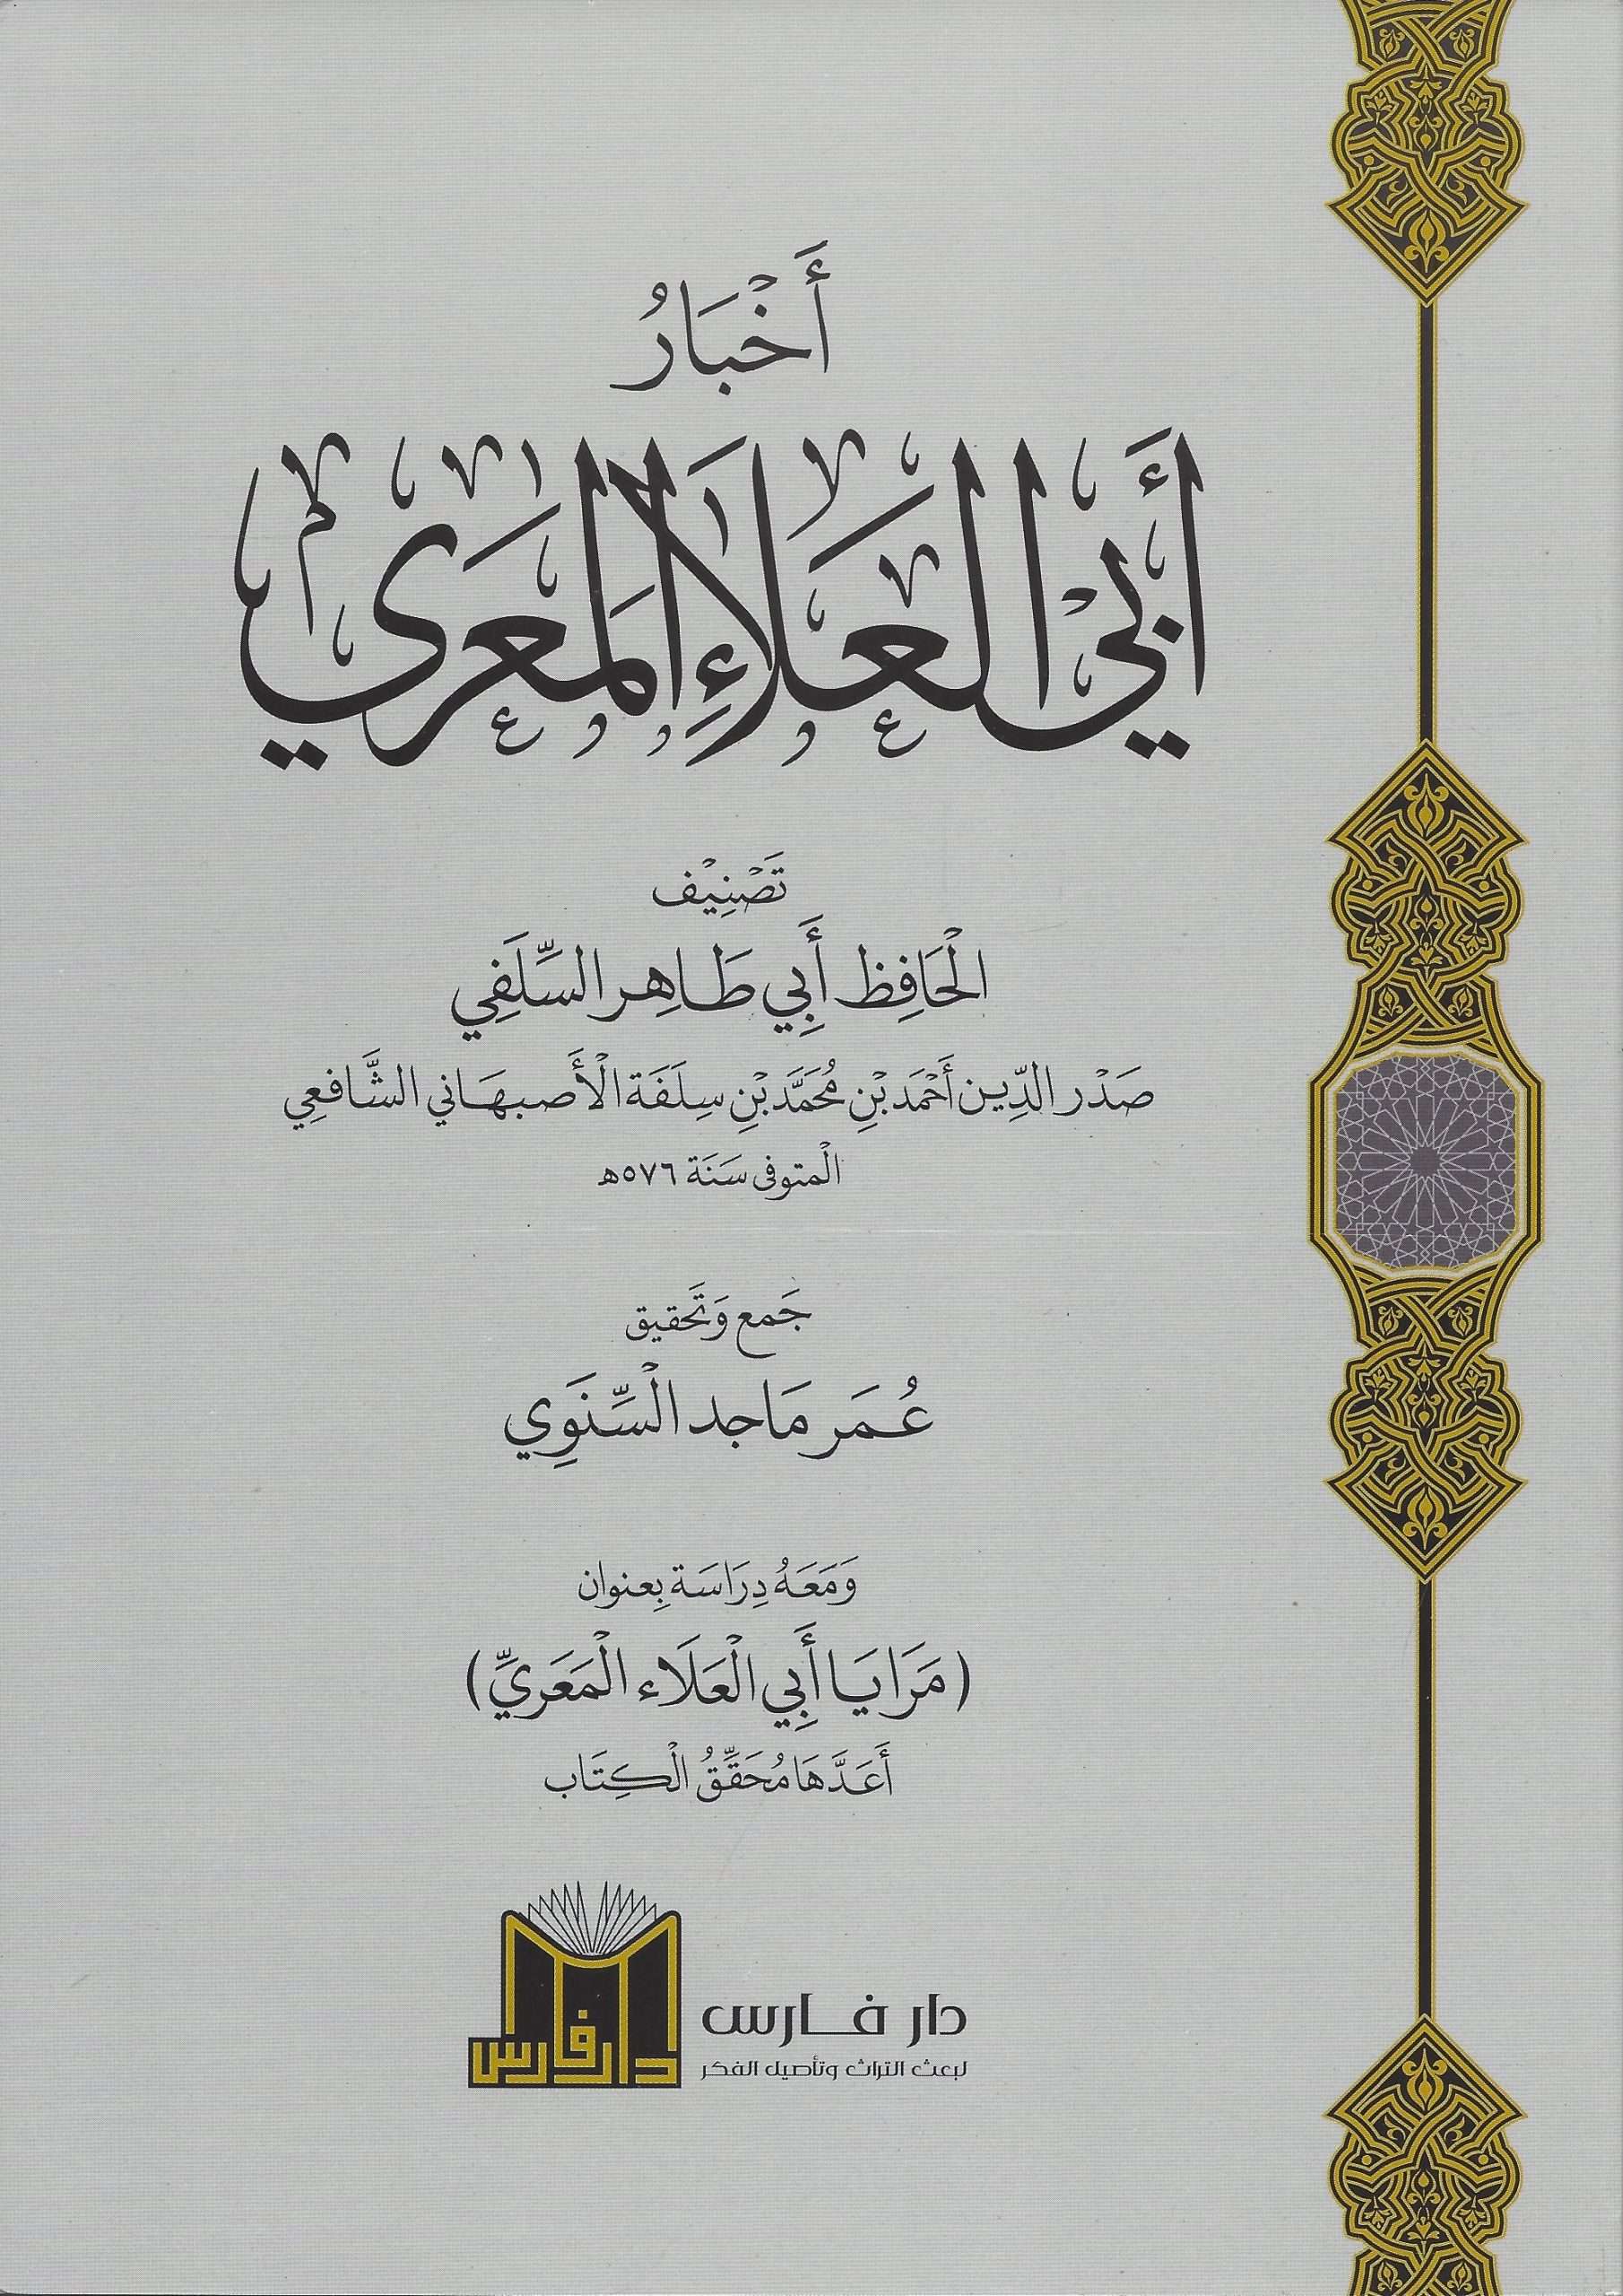 أَخْبَارُ
أَبِي العَلَاءِ المَعَرِي
تَصْنِيْف
الْحَافِظ أَبِي طَاهِر السِّلَفِي
صَدْر الدِّين أَحْمَد بْنِ مُحَمَّد بْنِ سِلَفَة الْأَصبهَاني الشَّافعِي
الْمتوفى سَنَة ٥٧٦هـ
جَمع وَتَحقيق
عُمَر مَاجد السِّنَوِي
وَمَعَهُ دِرَاسَة بِعنوان
(مَرَايَا أَبِي الْعَلَاء الْمَعَرِيِّ)
أَعَدَّهَا مُحَقِّقُ الْكِتَاب
دار فارس
لبعث التراث وتأصيل الفكر
دار فارس